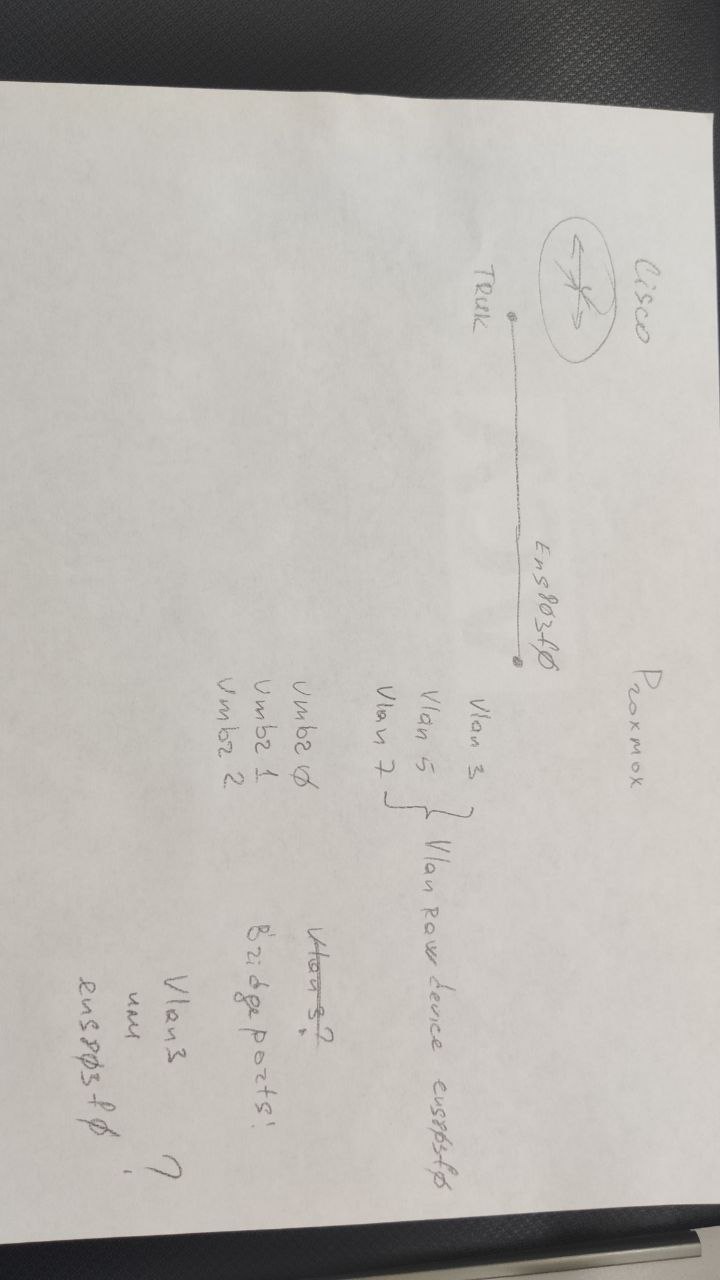 Cisco
Proxmox
Ens803f0
TRUK
Vlan 3
Vlan 5
Vlan 7
Vlan Raw device ens803f0
Vmbr 0
Vmbr 1
Vmbr 2
Vlan 3?
Bridge ports:
Vlan3
или
ens803f0
?